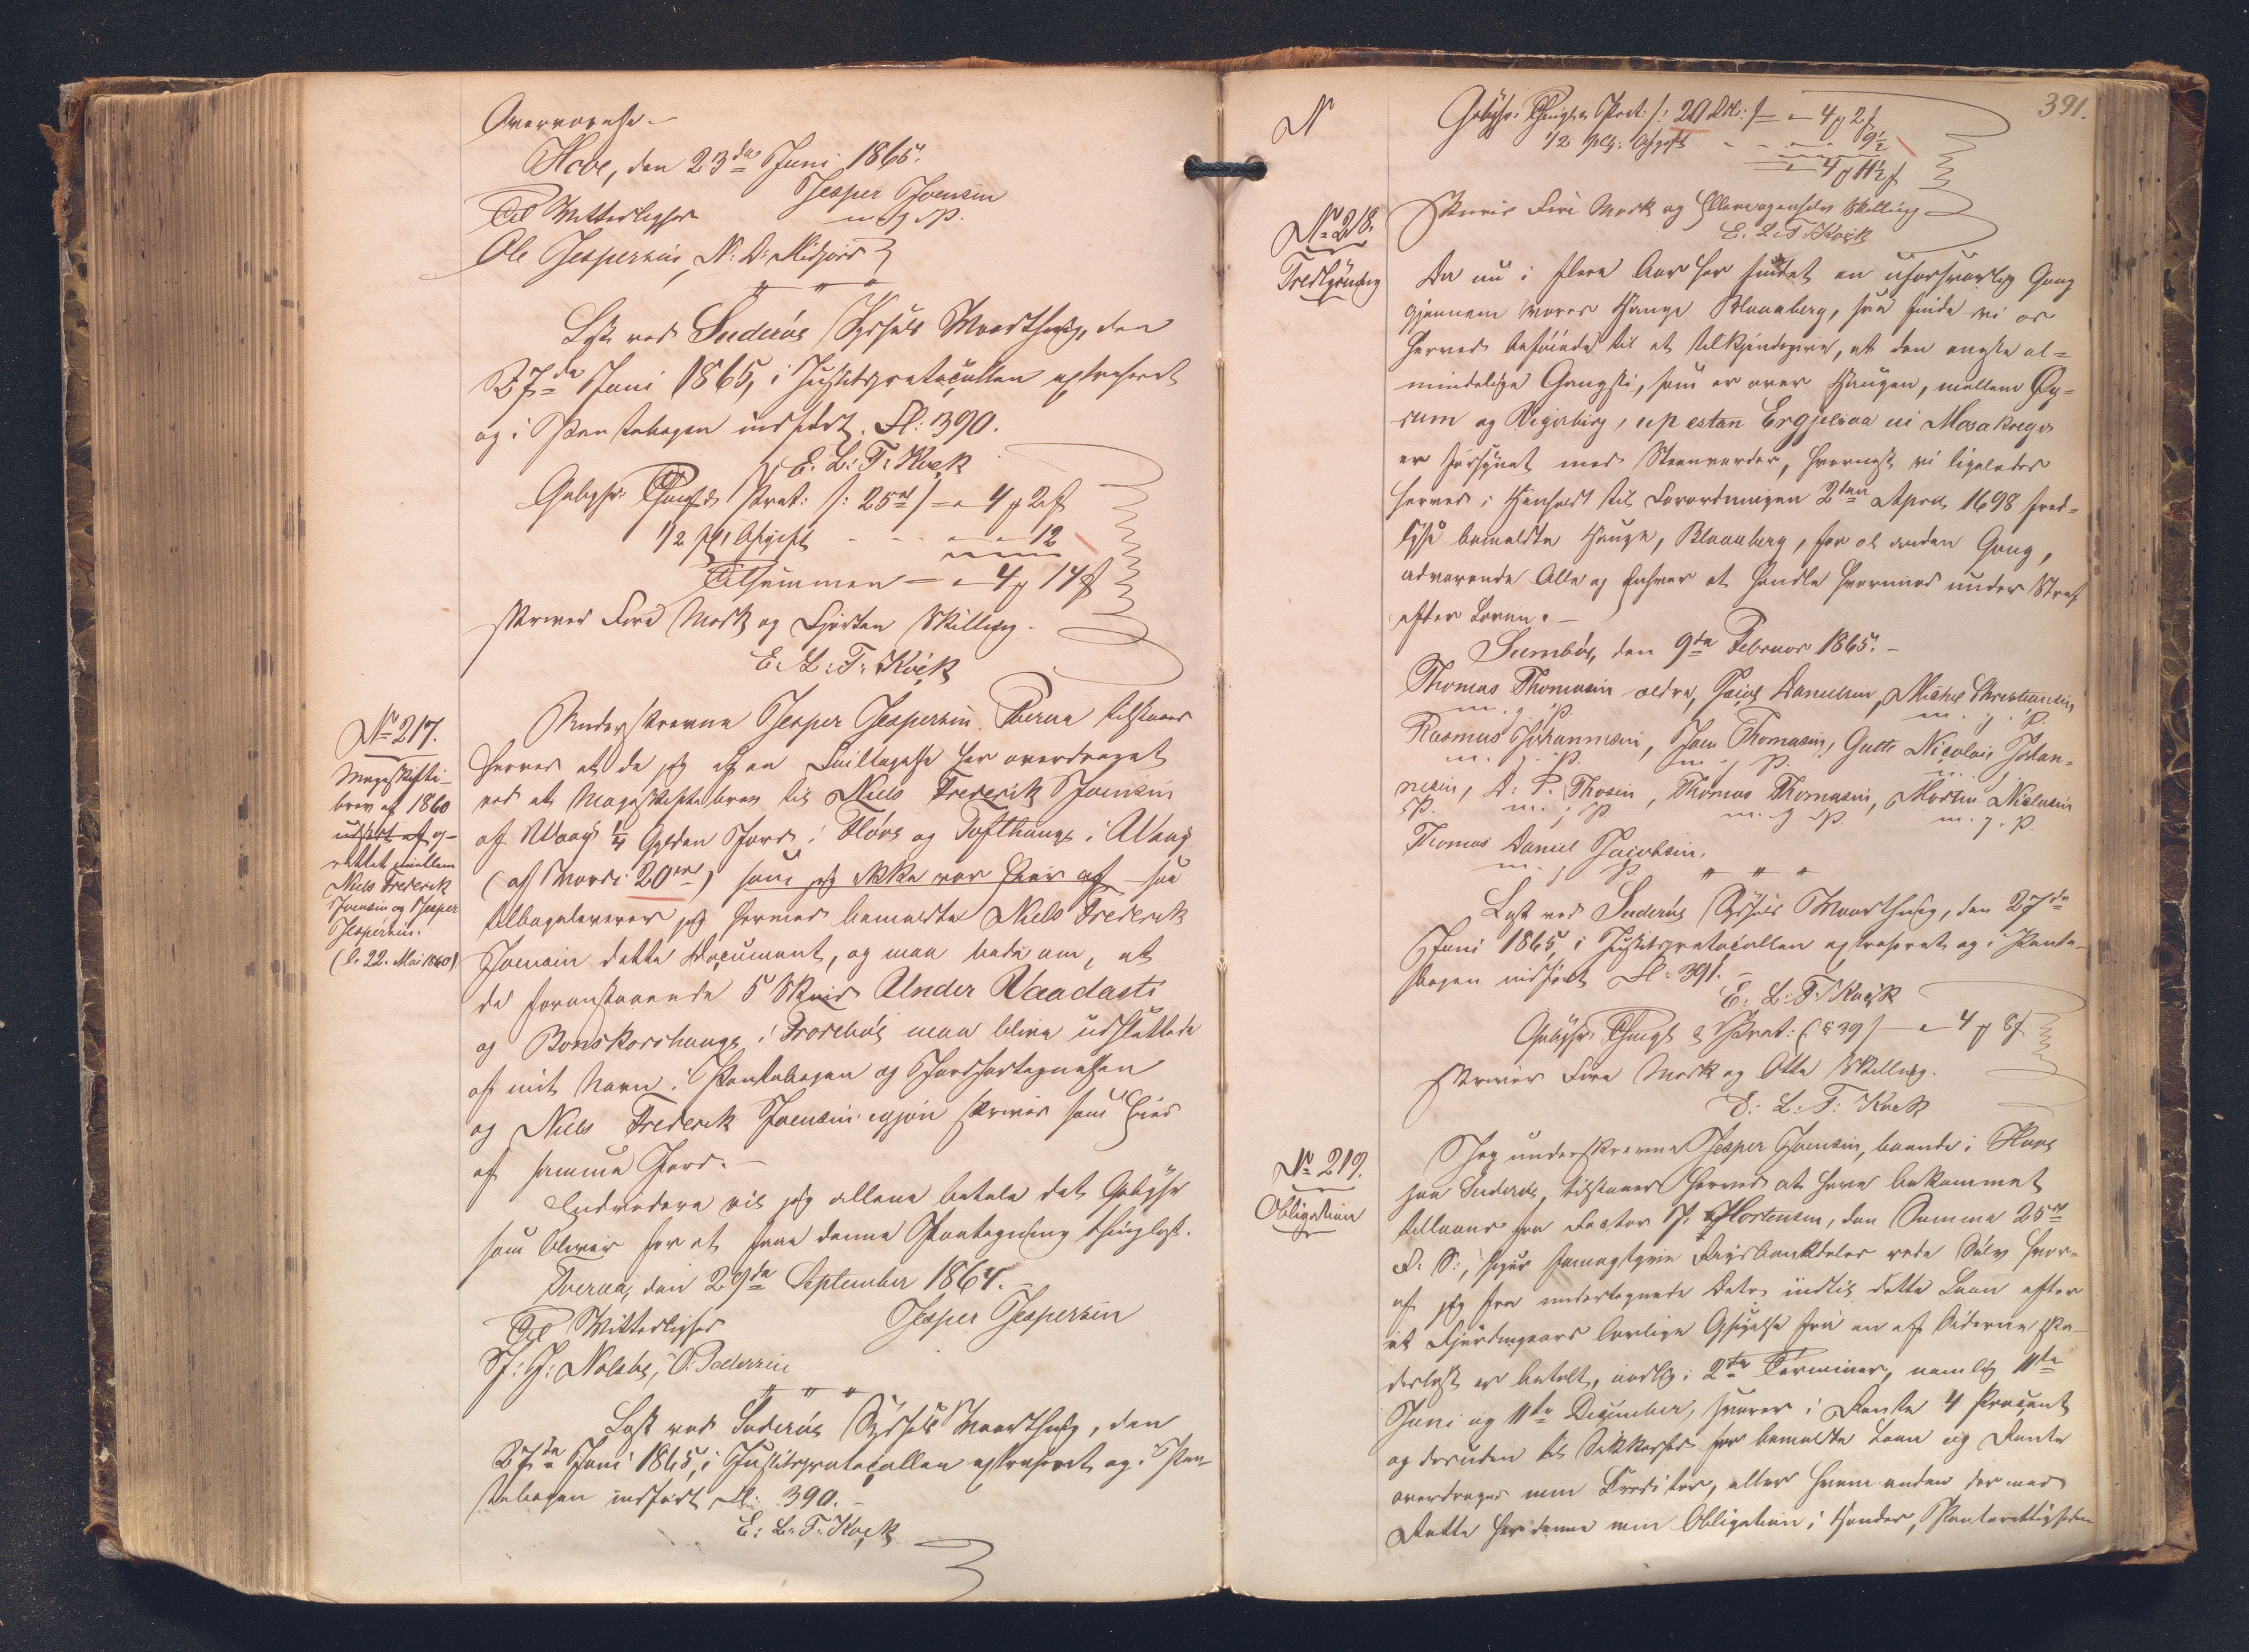 Overværelse.
Hove, den 23de Juni 1865.
Jesper Joensen
Til Vitterlighed m. g. P.
Ole Jespersen, N: D: Midjord
Læst ved Suderøe Syssels Vaarthing, den
27de Juni 1865, i Justitsprotocollen extraheret
og i Pantebogen indført Fl: 390.
E. L: T: Kock
Gebyhr: Thingl. & Prot: /: 25rd /= " 4 p 2 s
1/2 pCt Afgift - - " " 12
Tilsammen = " 4 p 14 s
skriver Fire Mark og Fjorten Skilling.
E. L: T: Kock
No 217.
Mageskifte-
brev af 1860
udstedt af op-
rettet mellem
Niels Frederik
Joensen og Jesper
Jespersen.
(l. 22. Mai 1860)
Underskrevne Jesper Jespersen Tveraa tilstaaer
herved at da jeg af en Feiltagelse har overdraget
ved et Mageskiftebrev til Niels Frederik Joensen
af Waag 1/4 Gylden Jord i Fløve og Tofthauge i Waag
(af Værdi 20rd) som jeg ikke var Eier af – saa
tilbageleverer jeg hermed bemeldte Niels Frederik
Joensen dette Document, og maa bede om, at
de foranstaaende 5 Skind Under Vaadasti
og Bonskorshauge i Frodebøe maa blive udslettede
af mit Navn i Pantebogen og Jordfortegnelsen
og Niels Frederik Joensen igjen skrives som Eier
af samme Jord.–
Endvidere vil jeg allene betale det Gebyhr
som bliver for at faae denne Paategning thinglæst.
Tveraa, den 29de September 1864.
Til Vitterlighed Jesper Jespersen
J: J: Nolsøe, O. Pedersen
Læst ved Suderøe Syssels Vaarthing, den
27de Juni 1865, i Justitsprotocollen extraheret og i Pan-
tebogen indført Fl: 390.–
E: L: T: Kock
391.
N
Gebyhr: Thingl. & Prot: /: 20 Rdl: /= " 4 p 2 s
1/2 pCt: Afgift - - " " 9 1/2
" 4 p 11 1/2 s
skriver Fire Mark og Ellevogenhalv Skilling
E. L: T: Kock
No 218.
Fredlysning
Da nu i flere Aar har fundet en uforsvarlig Gang
gjennem vores Hauge Blaaberg, saa finde vi os
herved beføiede til at tilkjendegive, at den eneste al-
mindelige Gangsti, som er over Haugen, mellem Øy-
rum og Vigabirg, up estan Ergjelsaa ui Mosakregv
er forsynet med Steenvarder, hvornæst vi ligeledes
herved i Henhold til Forordningen 2den April 1698 fred-
lyse bemeldte Hauge, Blaaberg, for al anden Gang,
advarende Alle og Enhver at handle herimod under Straf
efter Loven.–
Sumbøe, den 9de Februar 1865.–
Thomas Thomasen ældre, Jacob Danielsen, Michel Christiansen,
m. g. P. m. g. P.
Rasmus Johannesen, Joen Thomasen, Gutte Nicolai Johan-
m. g. P. m. g. P. m.
nesen, D. P. Thosen, Thomas Thomasen, Morten Nielasen
P. m. g. P. m. g. P. m. g. P.
Thomas Daniel Jacobsen.
m. g. P.
Læst ved Suderøe Syssels Vaarthing, den 27de
Juni 1865, i Justitsprotocollen extraheret og i Pante-
bogen indført Fl: 391.–
E: L: T: Kock
Gebyhr: Thingl. & Prot: (§ 39) – " 4 p 8 s
skriver Fire Mark og Otte Skilling.
E: L: T: Kock
No 219.
Obligation
Jeg underskrevne Jesper Joensen, boende i Hove
paa Suderøe, tilstaaer herved at have bekommet
tillaans fra Factor P. Mortensen, den Summa 25rd
R. S:, siger femogtyve Rigsbankdaler rede Sølv hvor-
af jeg fra undertegnede Dato indtil dette Laan efter
et Fjerdingaars lovlige Opsigelse fra en af Siderne ska-
desløst er betalt, aarlig i 2de Terminer, nemlig 11te
Juni og 11te December, svarer i Rente 4 Procent
og desuden til Sikkerhed for bemeldte Laan og Rente
overdrages min Creditor, eller hvem anden der med
Rette har denne min Obligation i Hænder, Panterettigheden